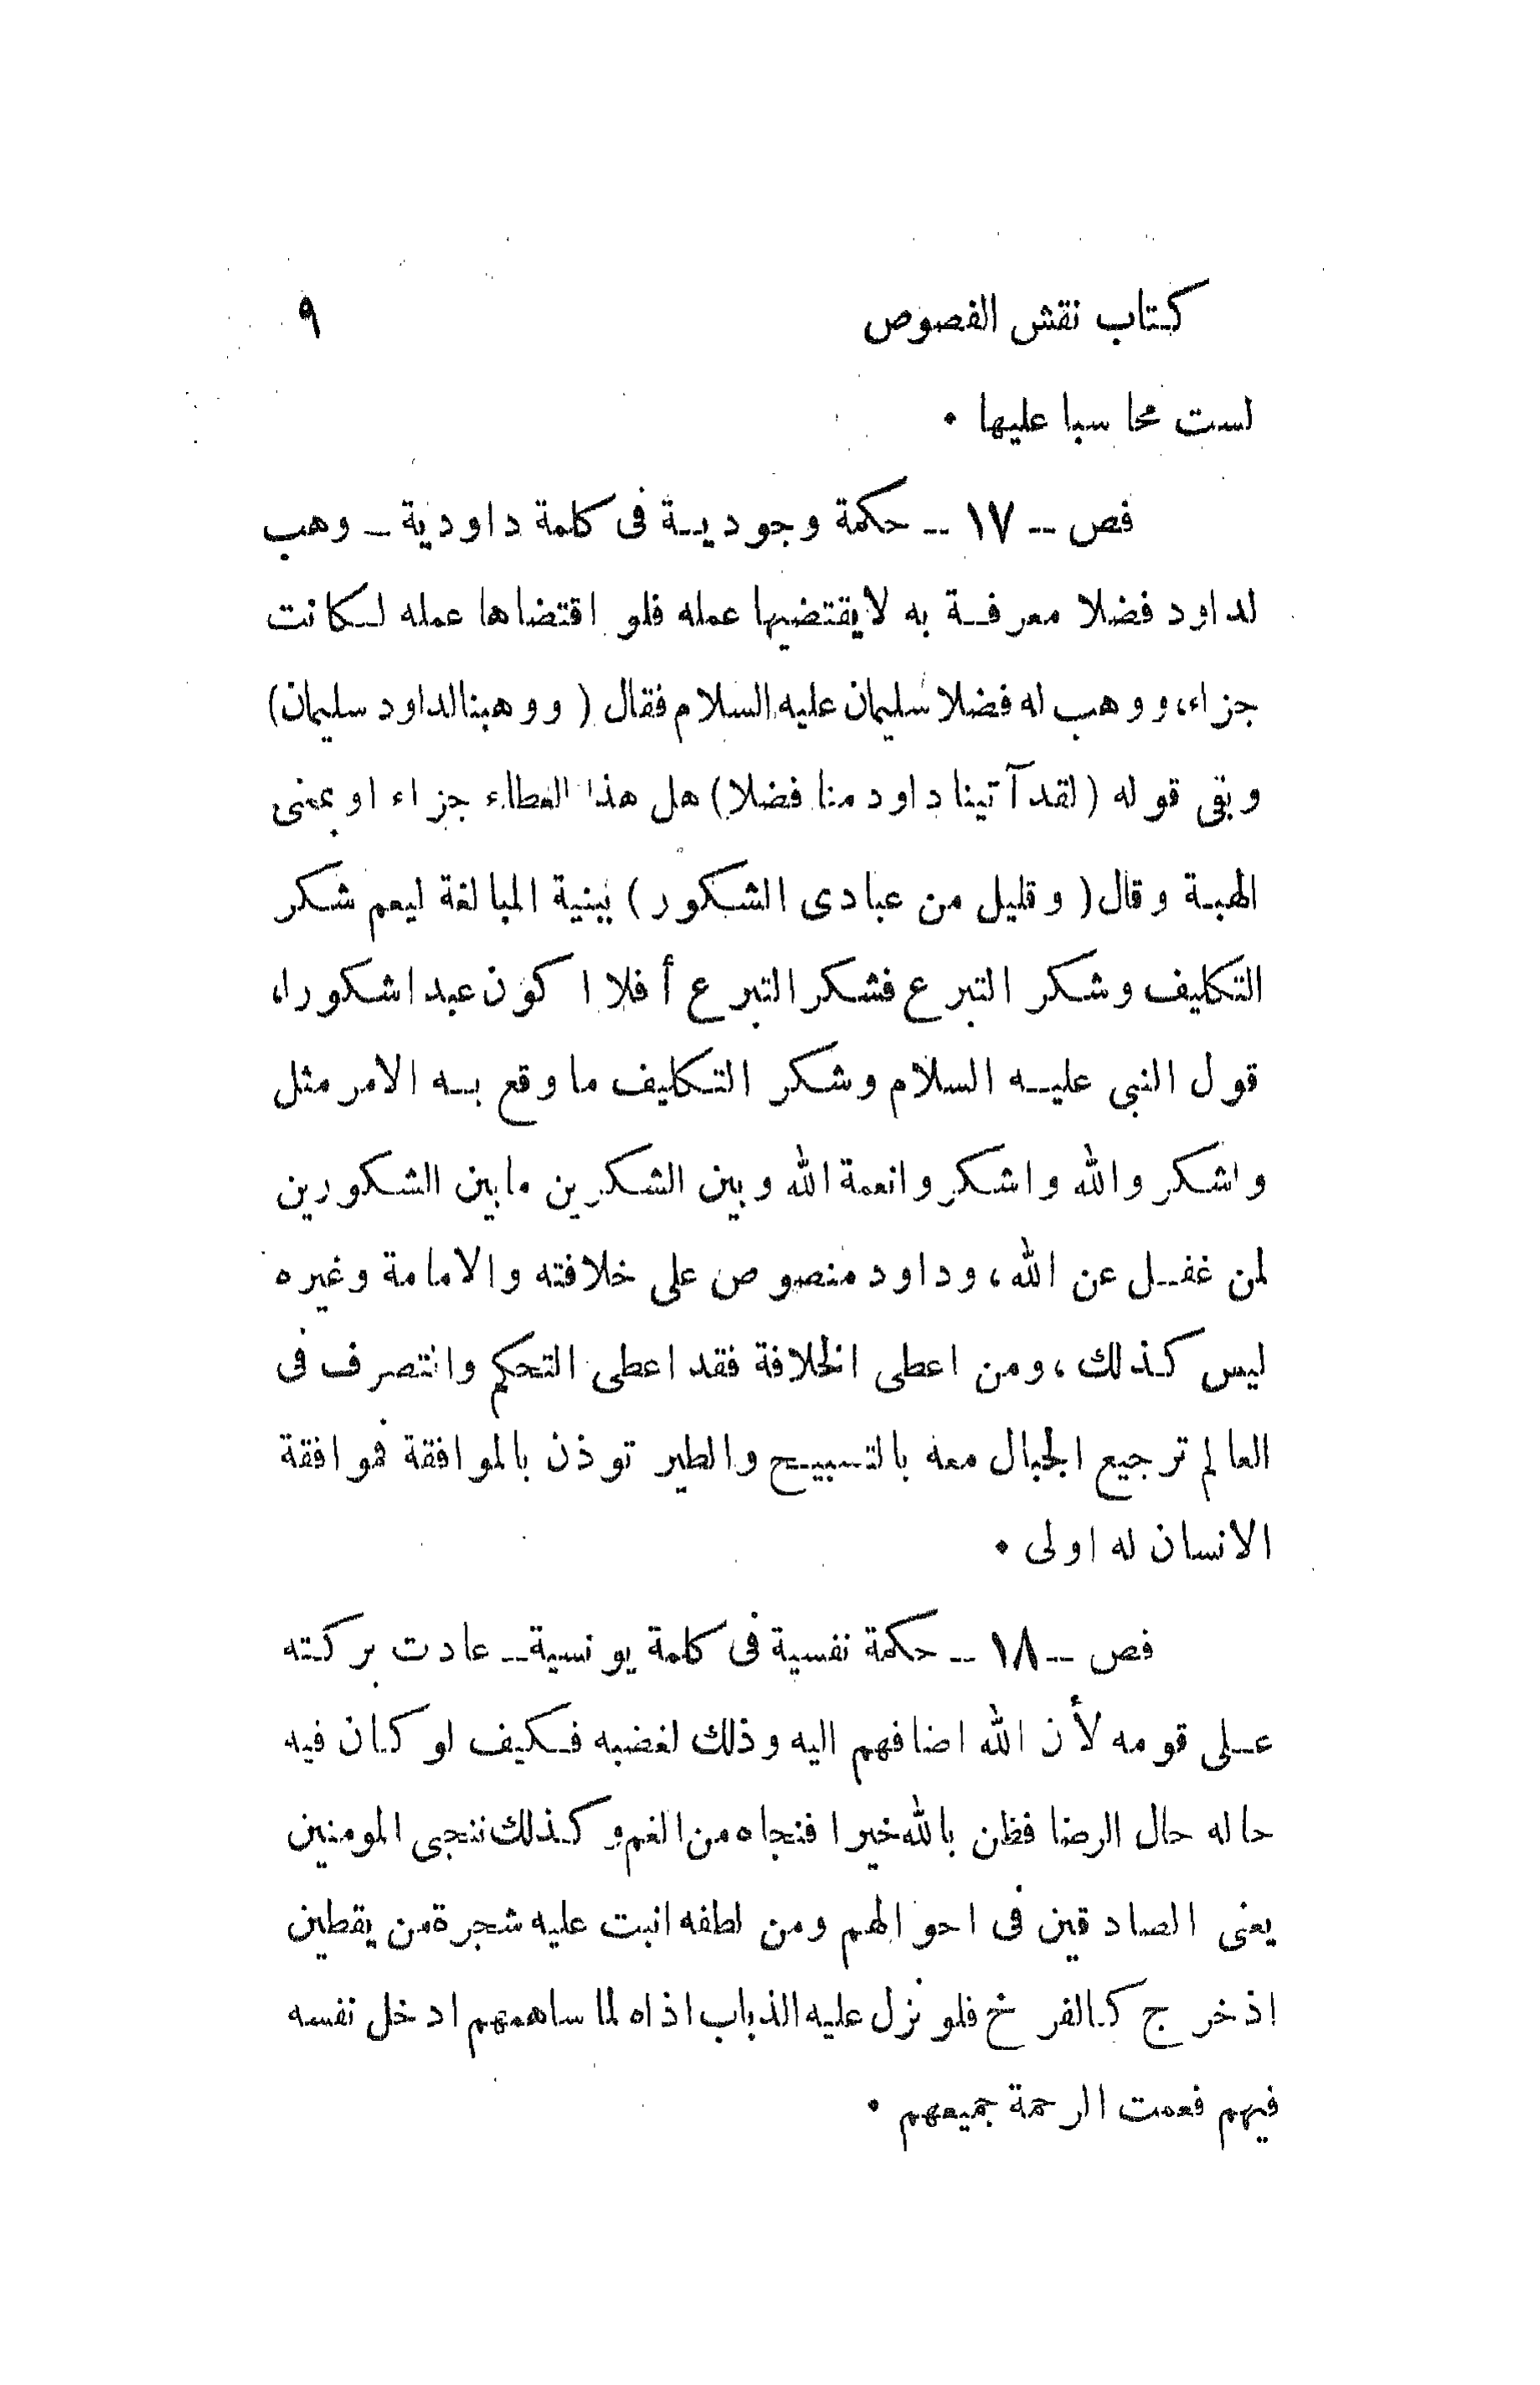 كتاب نقش الفصوص ٩
لست محاسبا عليها .
فص -- ١٧ -- حكمة وجودية فى كلمة داودية -- وهب
لداود فضلا معرفة به لا يقتضيها عمله فلو اقتضاها عمله لكانت
جزاء، ووهب له فضلا سليمان عليه السلام فقال (ووهبنا لداود سليمان)
وبقى قوله (لقد آتينا داود منا فضلا) هل هذا العطاء جزاء او بمعنى
الهبة وقال (وقليل من عبادى الشكور) ببنية المبالغة ليعم شكر
التكليف وشكر التبرع فشكر التبرع أفلا اكون عبدا شكورا،
قول النبى عليه السلام وشكر التكليف ما وقع به الامر مثل
واشكروالله واشكروا نعمة الله وبين الشكرين ما بين الشكورين
لمن غفل عن الله، وداود منصوص على خلافته والامامة وغيره
ليس كذلك، ومن اعطى الخلافة فقد اعطى التحكم والتصرف فى
العالم ترجيع الجبال معه بالتسبيح والطير توذن بالموافقة فموافقة
الانسان له اولى .
فص -- ١٨ -- حكمة نفسية فى كلمة يونسية -- عادت بركته
على قومه لأن الله اضافهم اليه وذلك لغضبه فكيف لو كان فيه
حاله حال الرضا فظن بالله خيرا فنجاه من الغم وكذلك ننجى المومنين
يعنى الصادقين فى احوالهم ومن لطفه انبت عليه شجرة من يقطين
اذ خرج كالفرخ فلو نزل عليه الذباب اذاه لما ساهمهم ادخل نفسه
فيهم فعمت الرحمة جميعهم .